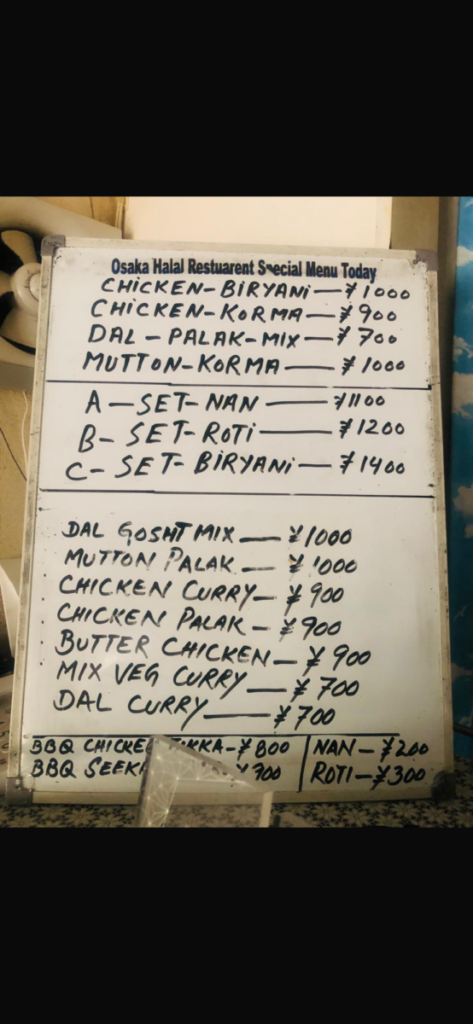 Osaka Halal Restuarent Special Menu Today
CHICKEN-BIRYANi-¥1000
CHICKEN-KORMA-¥900
DAL-PALAK-MIX-¥700
MUTTON-KORMA-¥1000
A-SET-NAN-¥1100
B-SET-ROTi-¥1200
C-SET-BIRYANi-¥1400
DAL GOSHT MIX-¥1000
MUTTON PALAK-¥1000
CHICKEN CURRY-¥900
CHICKEN PALAK-¥900
BUTTER CHICKEN-¥900
MIX VEG CURRY-¥700
DAL CURRY-¥700
BBQ CHICKEN TIKKA-¥800
BBQ SEEK ¥300
NAN-¥200
ROTI-¥300